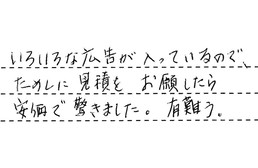 いろいろな広告が入っているので、
ためしに見積をお願したら
安価で驚きました。有難う。